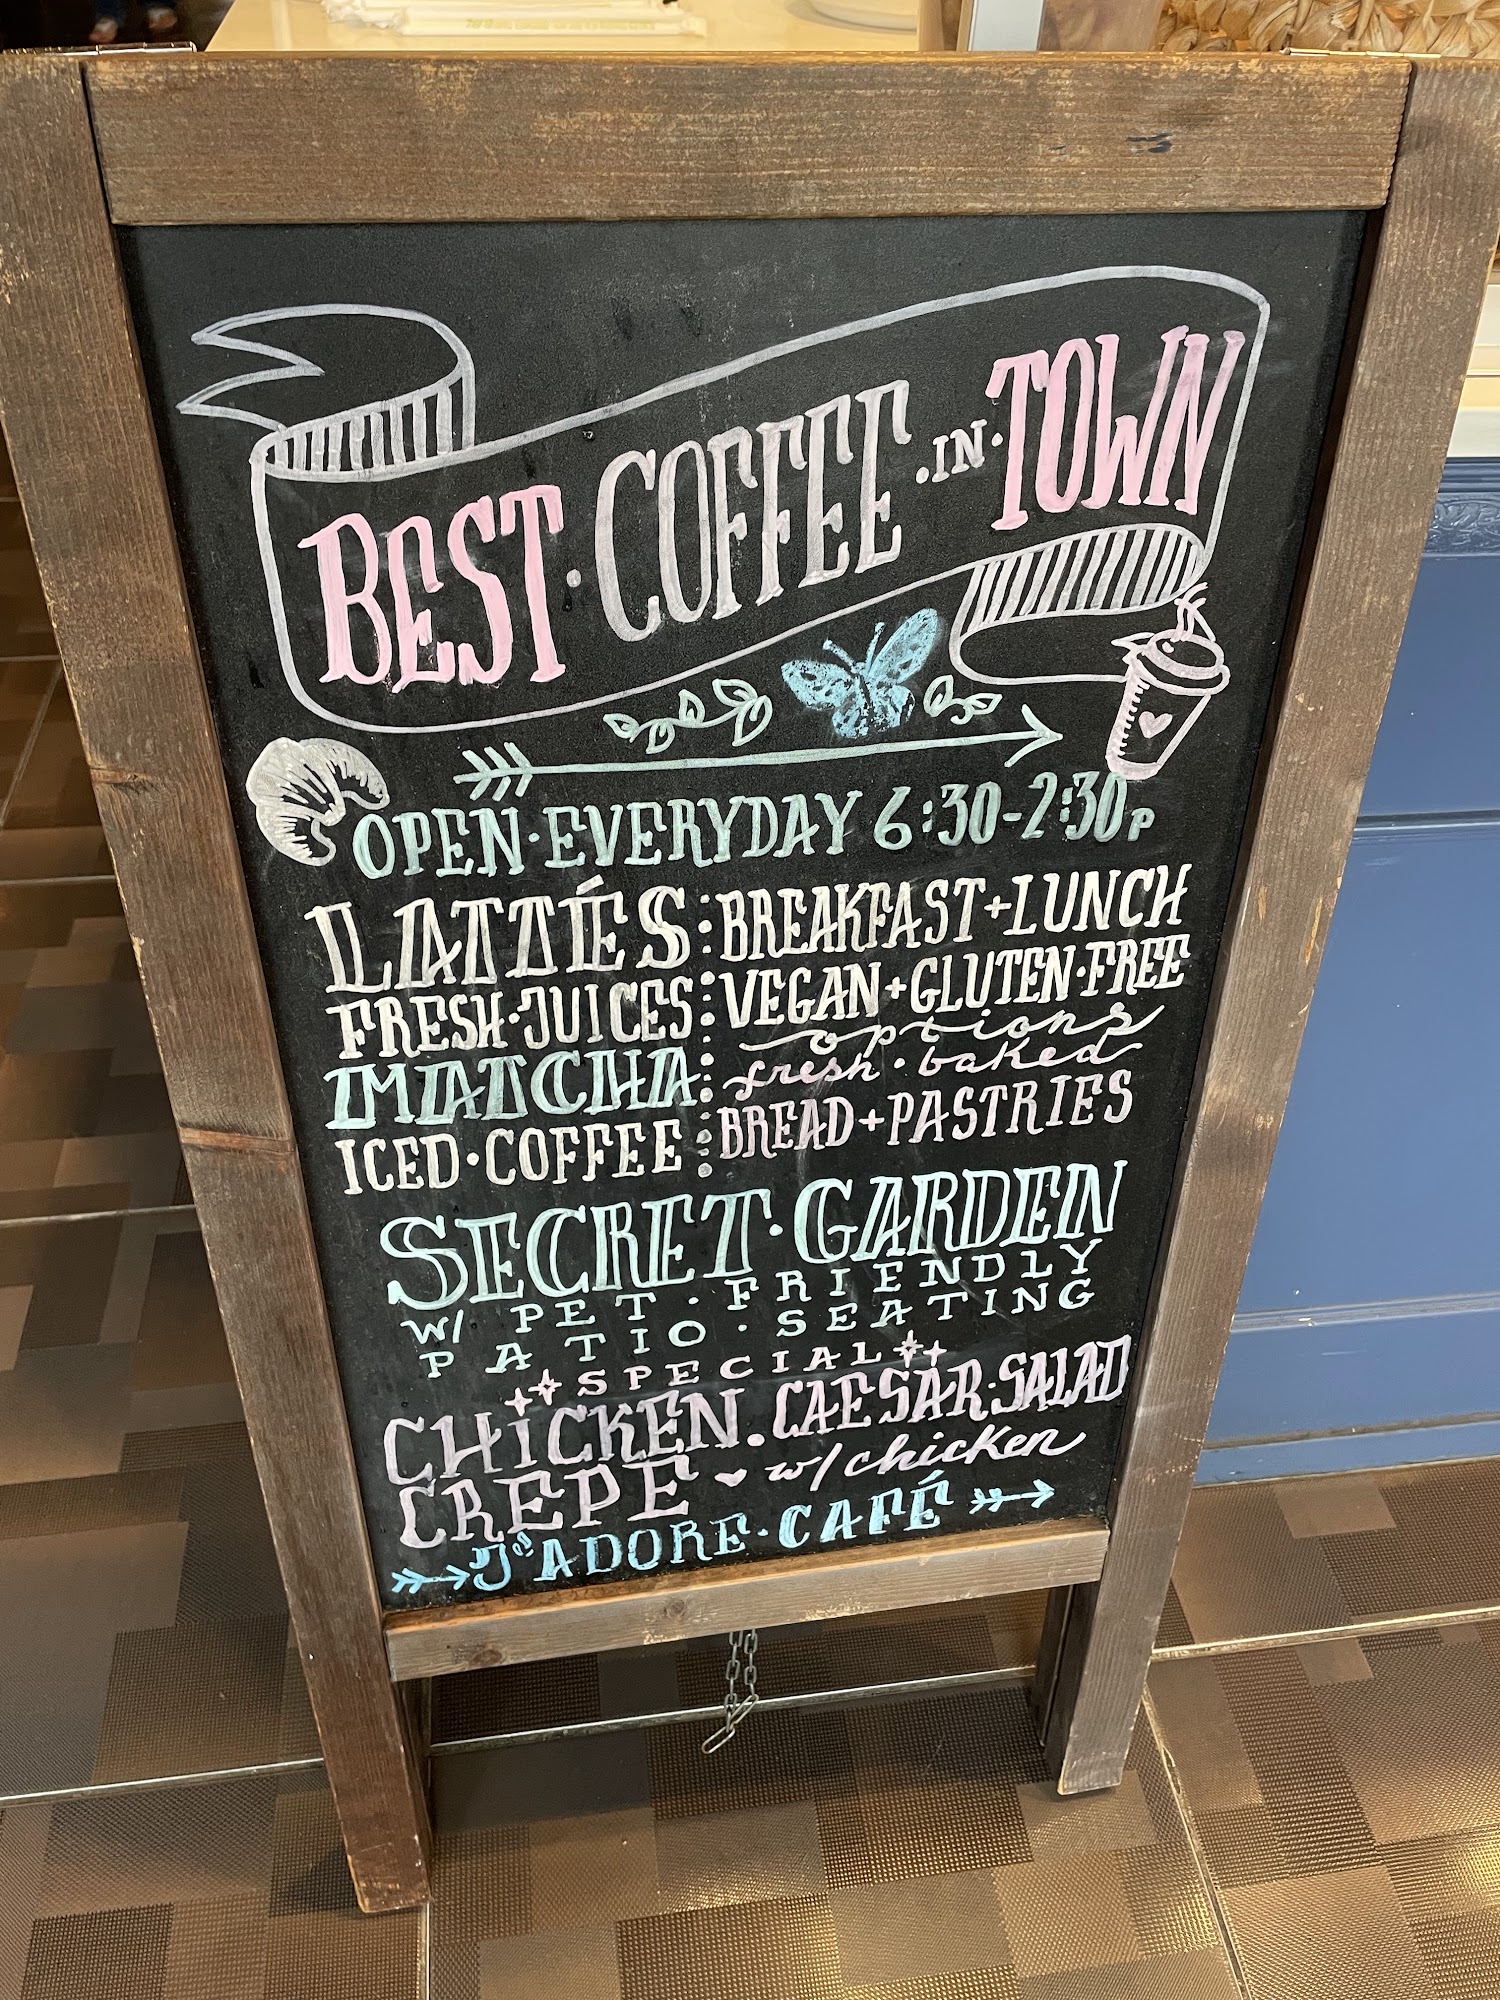 BEST·COFFEE·IN·TOWN
OPEN·EVERYDAY 6:30-2:30P
LATTÉS
FRESH·JUICES
MATCHA
ICED·COFFEE
BREAKFAST+LUNCH
VEGAN+GLUTEN·FREE
options
fresh·baked
BREAD+PASTRIES
SECRET·GARDEN
W/ PET·FRIENDLY
PATIO·SEATING
SPECIAL
CHICKEN
CREPE
CAESAR·SALAD
w/ chicken
J'ADORE·CAFÉ